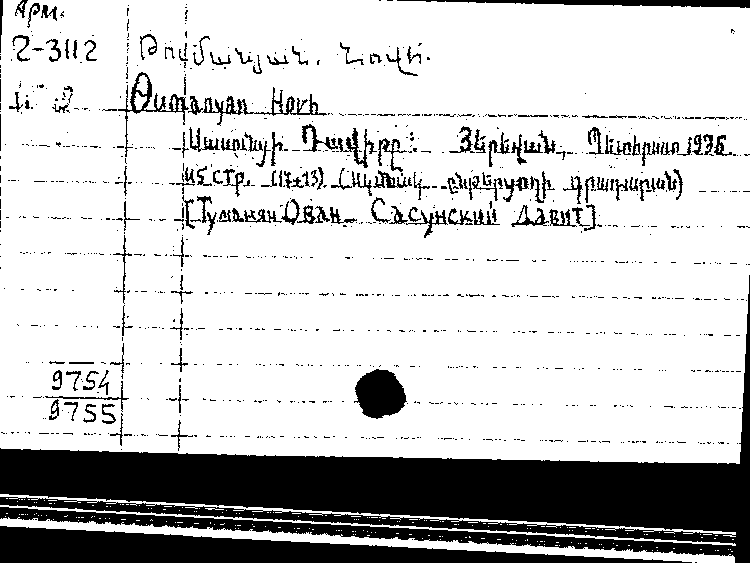 Арм.
2-3112 Թումանյան, Հովհ.
Թumanyan Hovh
Սասունցի Դավիթը: Յերևան, Պետհրատ 1936.
45 стр. (17×13) (Սկսնակ ընթերցողի գրադարան)
[Туманян Ован Сасунский Давит]
9754
9755